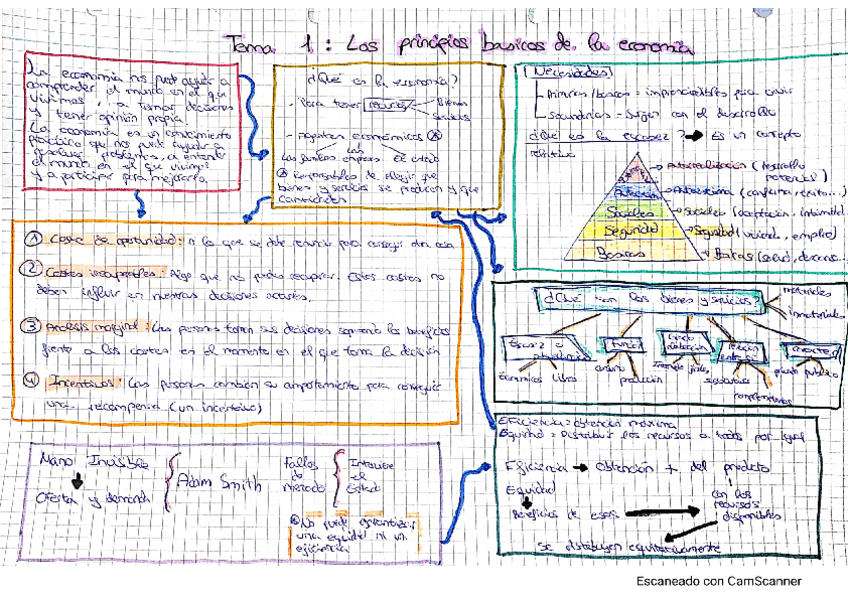 Tema 1: Los principios basicos de la economía
La economía nos puede ayudar a
comprender el mundo en el que
vivimos, a tomar decisiones
y tener opinión propia.
La economía es un conocimiento
práctico que nos puede ayudar a
resolver problemas, a entender
el mundo en el que vivimos
y a participar para mejorarlo.
¿Qué es la economía?
- Para tener recursos
Bienes
Servicios
- Agentes económicos
Las familias empresas El estado
Responsables de elegir que
bienes y servicios se producen y que
cantidades
Necesidades
Primarias/basicas = imprescindibles para vivir
secundarias - Surgen con el desarrollo
¿Qué es la escasez? Es un concepto
relativo
Autorrealización (desarrollo
potencial)
Autoestima (confianza, éxito...)
Sociales
Sociales (aceptación, intimidad)
Seguridad
Seguridad (vivienda, empleo)
Basicas
Basicas (salud, descanso...)
1 Coste de oportunidad: a lo que se debe renunciar para conseguir otra cosa
2 Costes irrecuperables: Algo que no podrás recuperar. Estos costes no
deben influir en nuestras decisiones
3 Analisis marginal: Las personas toman sus decisiones sopesando los beneficios
frente a los costes en el momento en el que toma la decisión
4 Incentivos: Las personas cambian su comportamiento para conseguir
una recompensa (un incentivo)
¿Qué son los bienes y servicios?
materiales
inmateriales
Escasez o
abundancia
Función
Económicos Libres
consumo
producción
sustitutivos
complementarios
público
Eficiencia = obtención máxima
Equidad = Distribuir los recursos a todos por igual
Eficiencia Obtención + del producto
Equidad
con los
recursos
disponibles
Beneficios de esos
Se distribuyen equitativamente
Mano Invisible
Oferta y demanda
Adam Smith
Fallos
de
mercado
Interviene
el
Estado
No puede garantizar
una equidad ni un
eficiencia
Escaneado con CamScanner